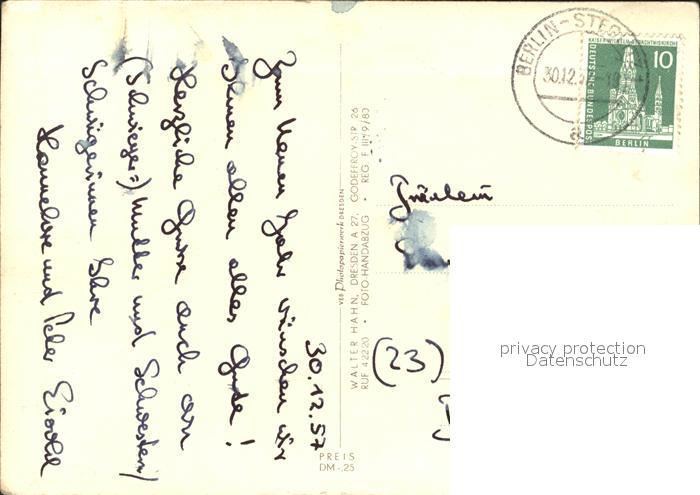 30.12.57
Zum Neuen Jahr wünschen wir
Ihnen allen alles Gute!
Herzliche Grüsse auch an
(Schwieger=) Mutter und Schwester/
Schwägerinnen Ihre
Hannelore und Peter
VEB Photopapierwerk DRESDEN
WALTER HAHN, DRESDEN A 27, GODEFFROY-STR. 26
RUF 42220 • FOTO-HANDABZUG • REG. F
PREIS
DM -.25
BERLIN-
30.12.
a
KAISER-WILHELM-GEDÄCHTNISKIRCHE
10
DEUTSCHE BUNDESPOST
BERLIN
Fräulein
(23)
privacy protection
Datenschutz